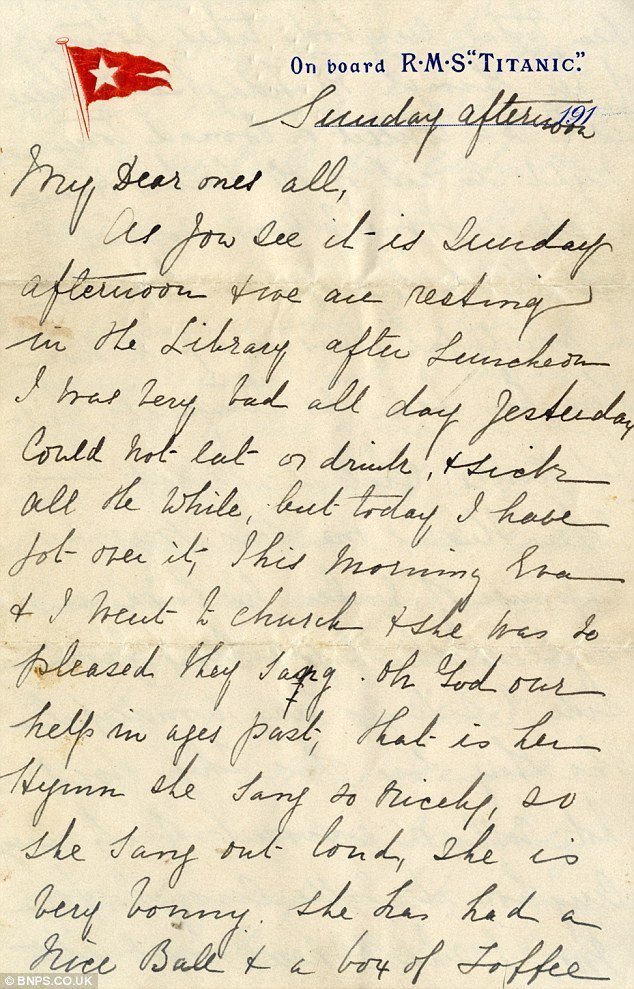 On board R·M·S. "TITANIC."
191
Sunday afternoon
My Dear ones all,
As you see it is Sunday
afternoon & we are resting
in the Library after Luncheon
I was very bad all day yesterday
Could not eat or drink, & sick
all the while, but today I have
got over it, This Morning Eva
& I went to church & she was so
pleased they sang. Oh God our
help in ages past, that is her
Hymn she sang so nicely, so
she sang out loud, she is
very bonny. She has had a
Nice Ball & a box of Toffee
© BNPS.CO.UK